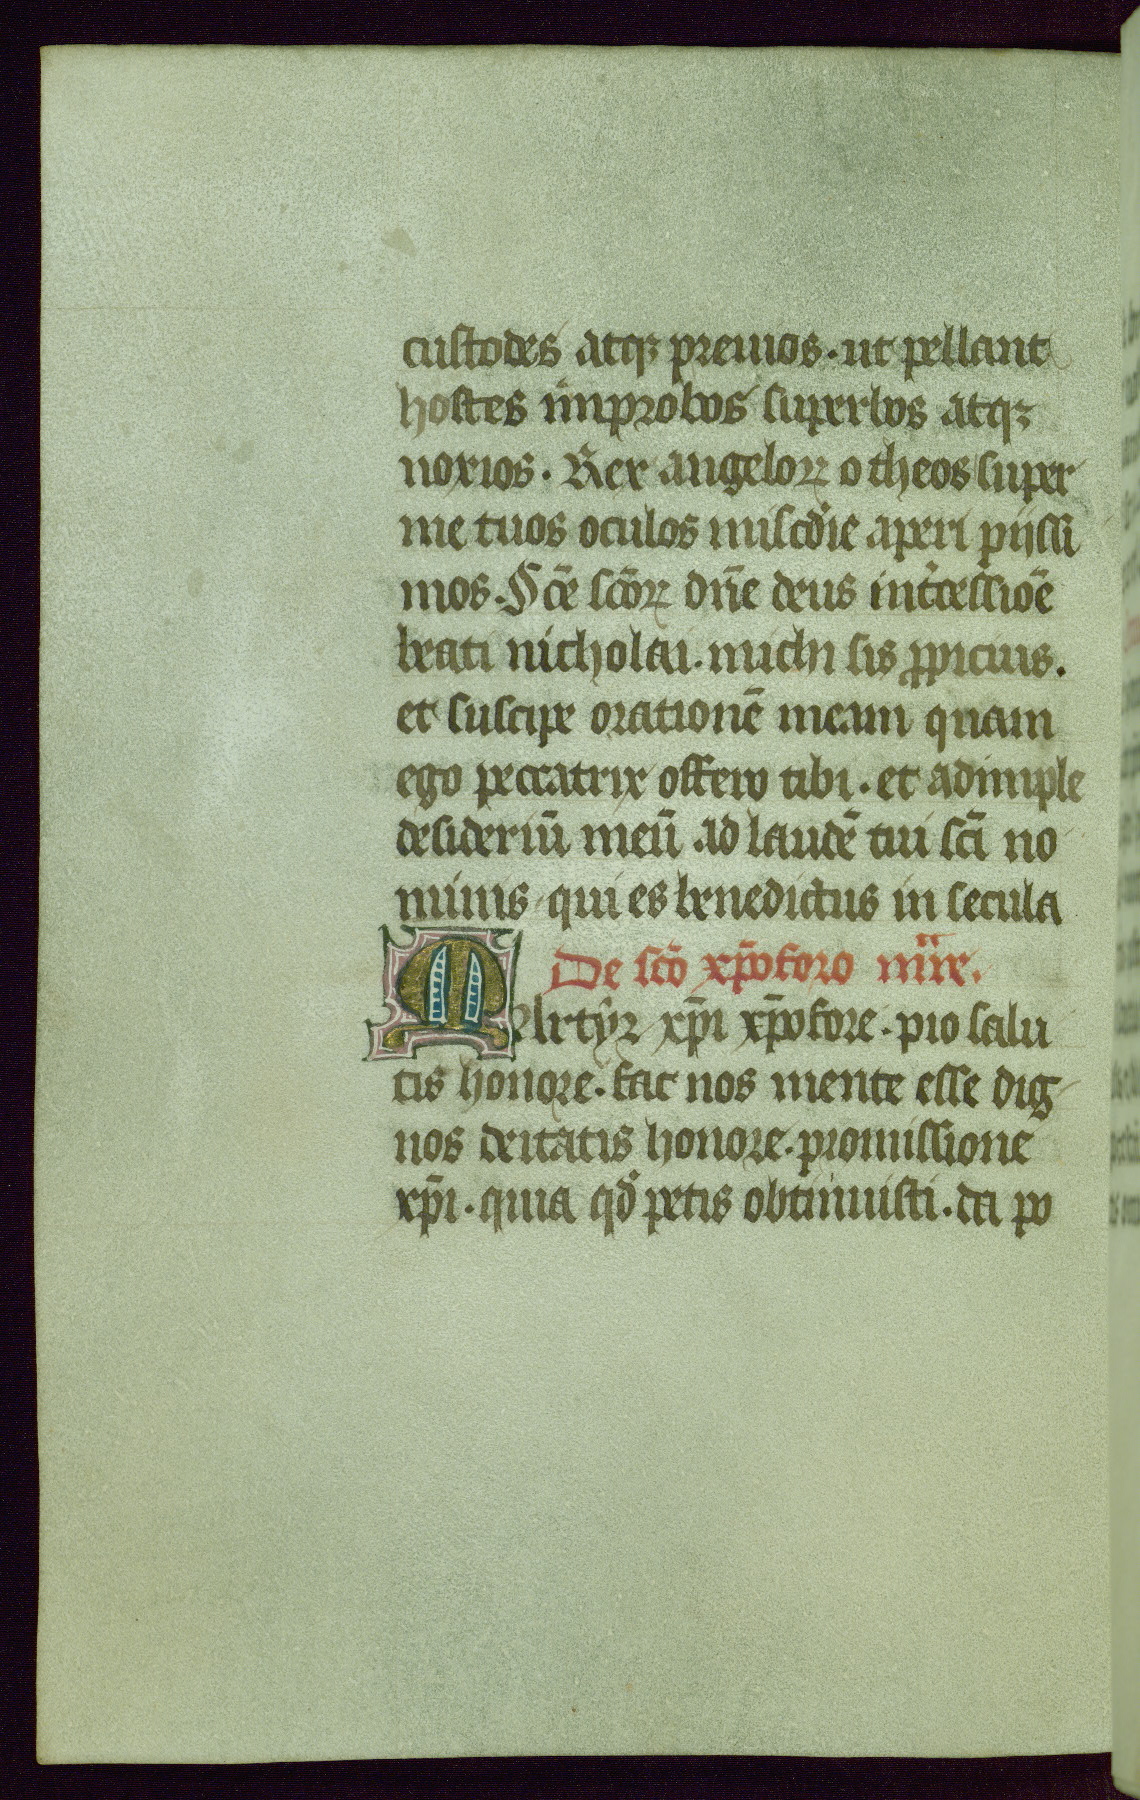 custodes atqꝫ prenios · ut pellant
hostes improbos superbos atqꝫ
noxios · Rex angeloꝝ o theos super
me tuos oculos miscd̄ie aperi pijssi
mos · Sc̄e sc̄oꝝ dn̄e deus int̄cessiōe
beati nicholai · michi sis ꝓpicius ·
et suscipe orationē meam quam
ego peccatrix offero tibi · et adimple
desideriū meū ad laudē tui sc̄i no
minis qui es benedictus in secula
De sc̄o xp̄oforo mr̄e.
Martyr xp̄i xp̄ofore · pio salu
tis honore · fac nos mente esse dig
nos deitatis honore · promissione
xp̄i · quia qd̄ petis obtinuisti · da po